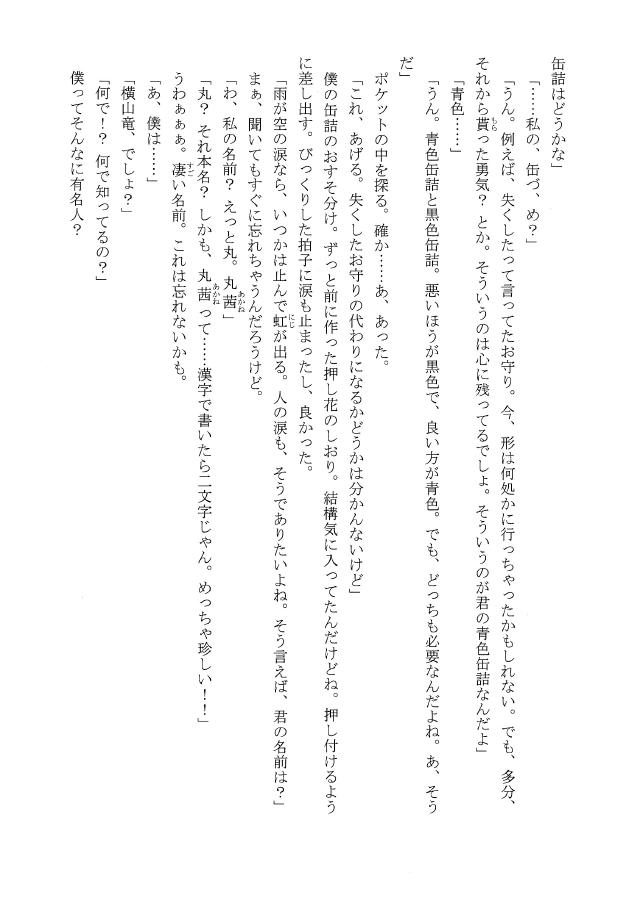 缶詰はどうかな」
「……私の、缶づ、め？」
「うん。例えば、失くしたって言ってたお守り。今、形は何処かに行っちゃったかもしれない。でも、多分、
それから貰った勇気？とか。そういうのは心に残ってるでしょ。そういうのが君の青色缶詰なんだよ」
「青色……」
「うん。青色缶詰と黒色缶詰。悪いほうが黒色で、良い方が青色。でも、どっちも必要なんだよね。あ、そう
だ」
ポケットの中を探る。確か……あ、あった。
「これ、あげる。失くしたお守りの代わりになるかどうかは分かんないけど」
僕の缶詰のおすそ分け。ずっと前に作った押し花のしおり。結構気に入ってたんだけどね。押し付けるよう
に差し出す。びっくりした拍子に涙も止まったし、良かった。
「雨が空の涙なら、いつかは止んで虹が出る。人の涙も、そうでありたいよね。そう言えば、君の名前は？」
まぁ、聞いてもすぐに忘れちゃうんだろうけど。
「わ、私の名前？えっと丸。丸茜」
「丸？それ本名？しかも、丸茜って……漢字で書いたら二文字じゃん。めっちゃ珍しい！！」
うわぁぁぁ。凄い名前。これは忘れないかも。
「あ、僕は……」
「横山竜、でしょ？」
「何で！？何で知ってるの？」
僕ってそんなに有名人？